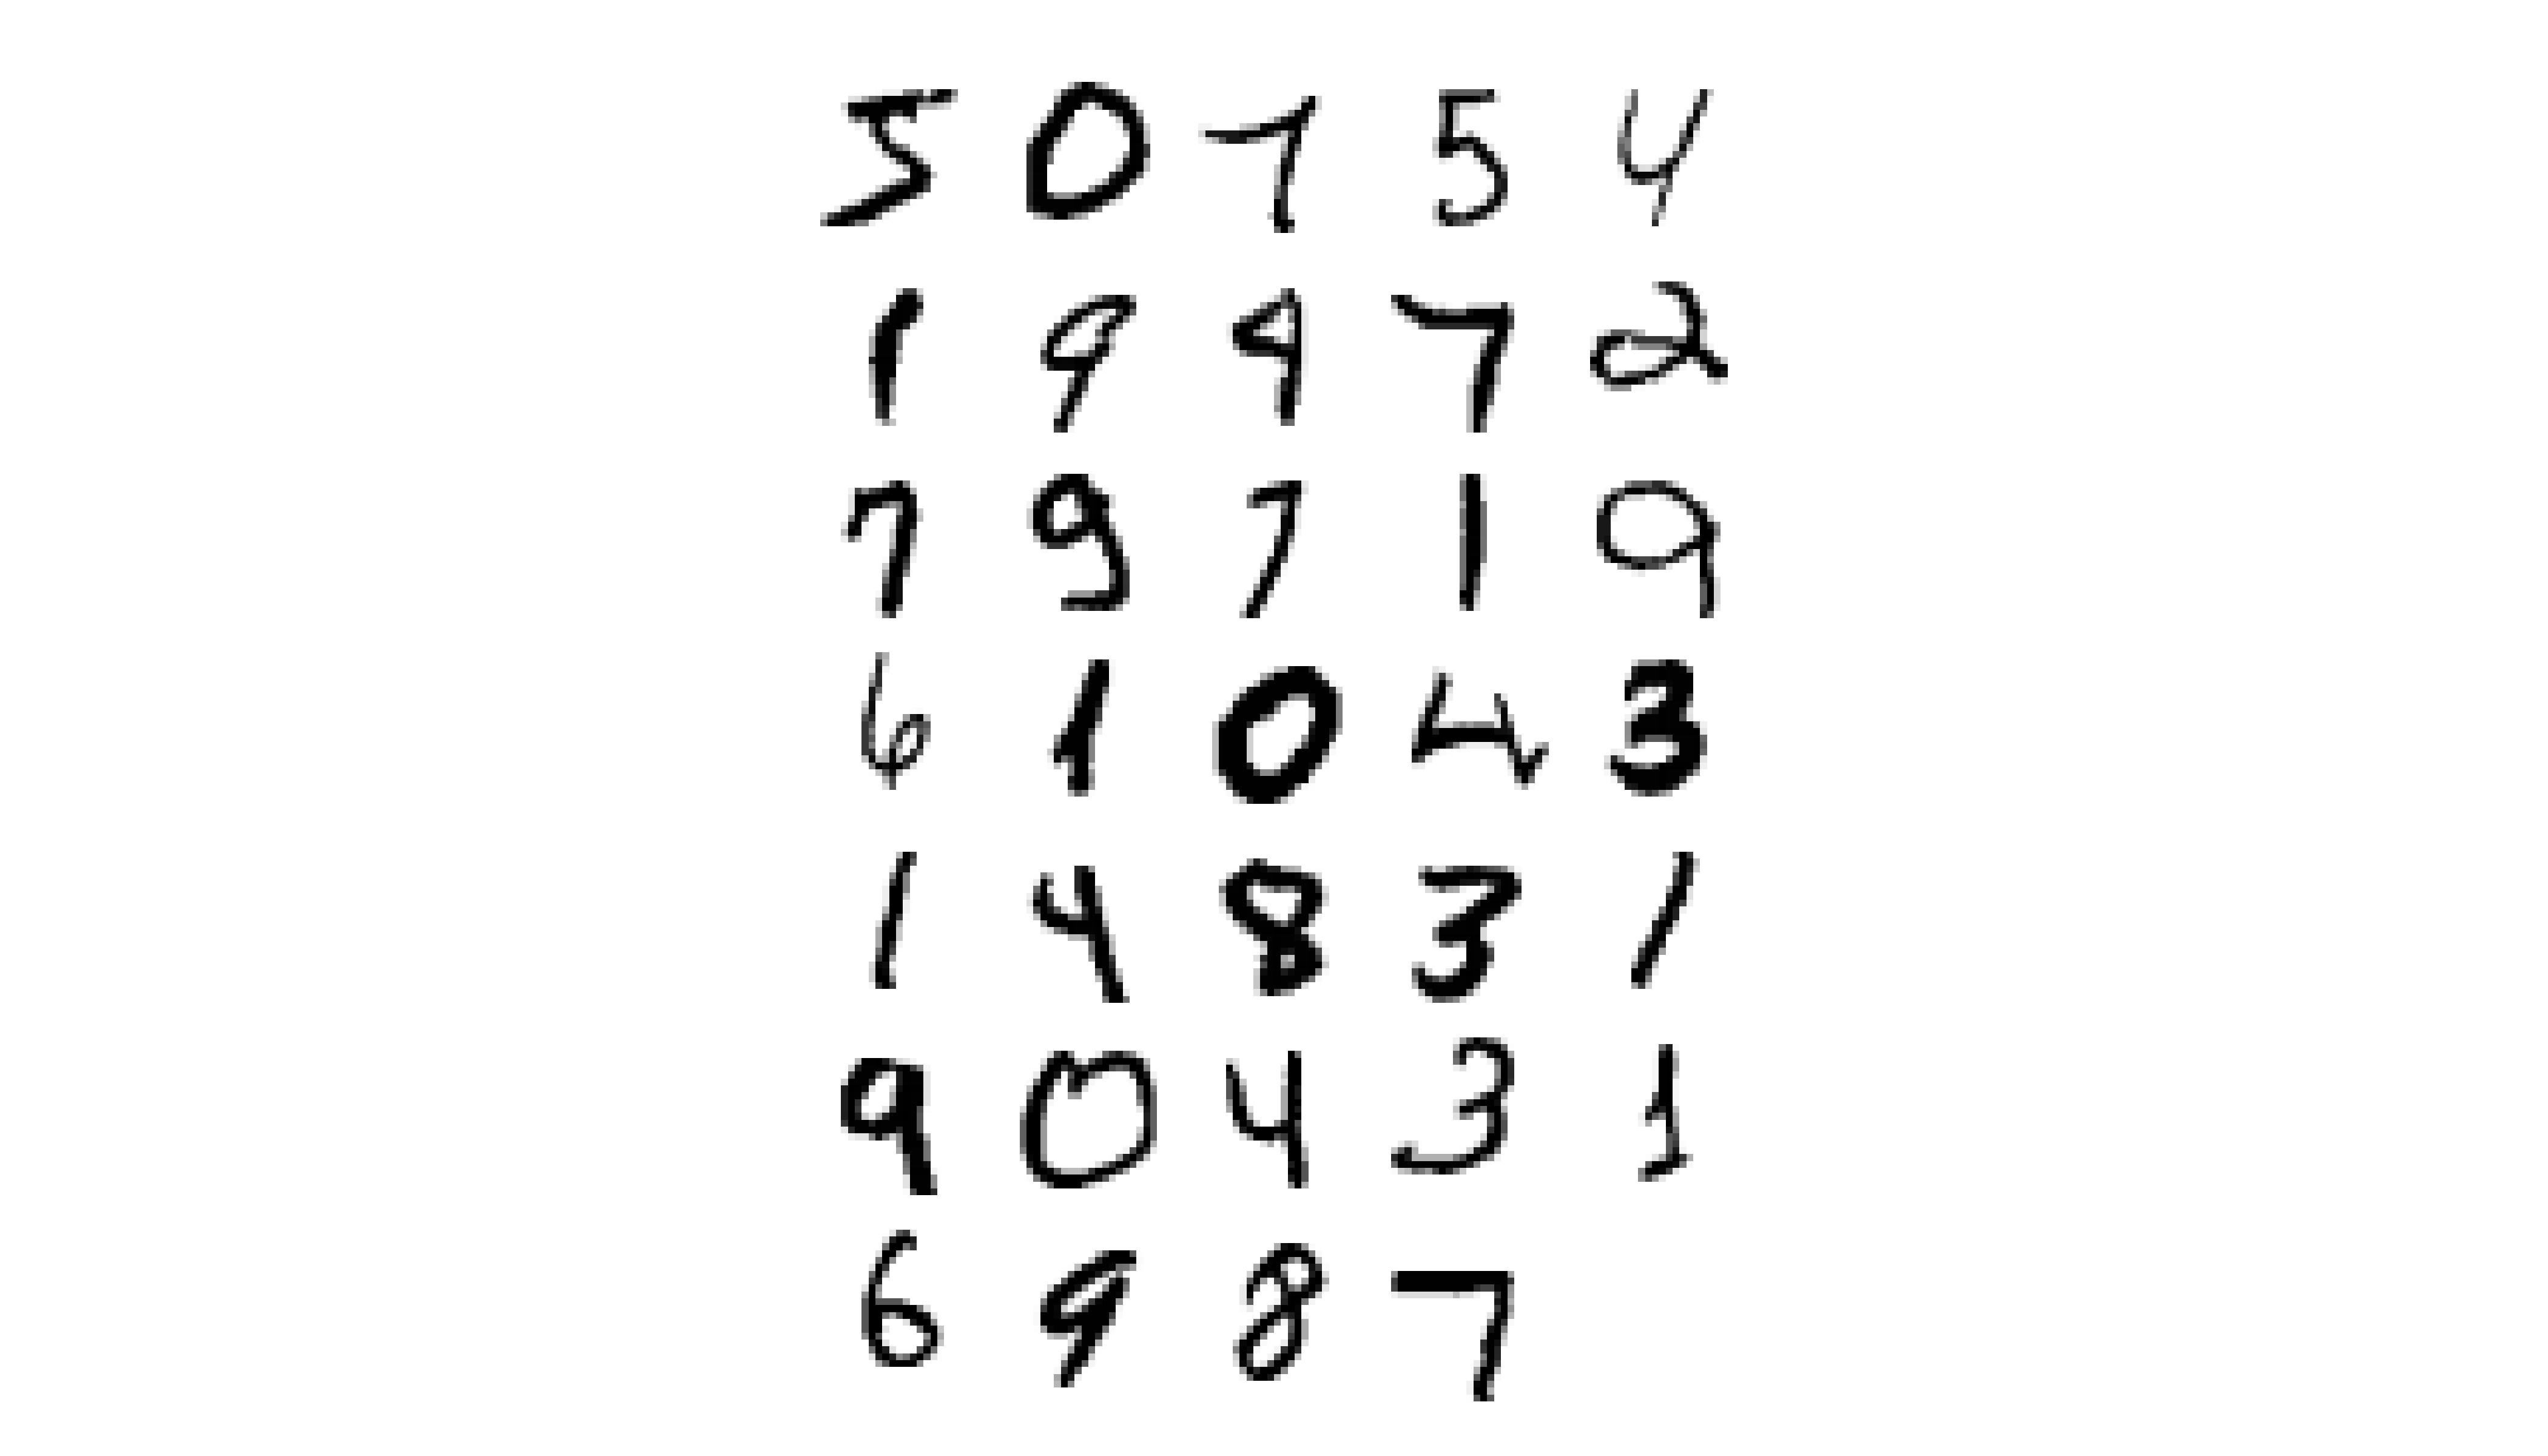 5 0 7 5 4
1 9 9 7 2
7 9 7 1 9
6 1 0 4 3
1 4 8 3 1
9 0 4 3 1
6 9 8 7